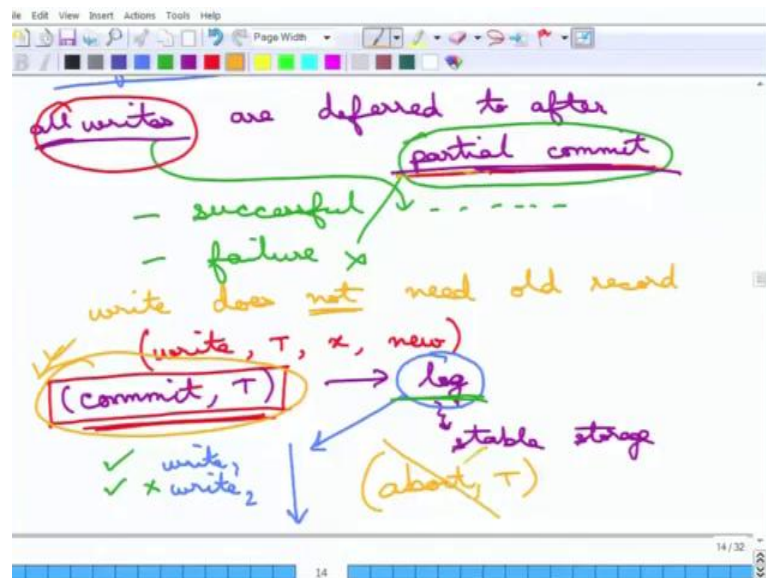 File Edit View Insert Actions Tools Help
Page Width
all writes are deferred to after
partial commit
- successful
- failure x
write does not need old record
(write, T, x, new)
(commit, T) → log
stable storage
✓ write1
✓ x write2 (abort, T)
14/32
14